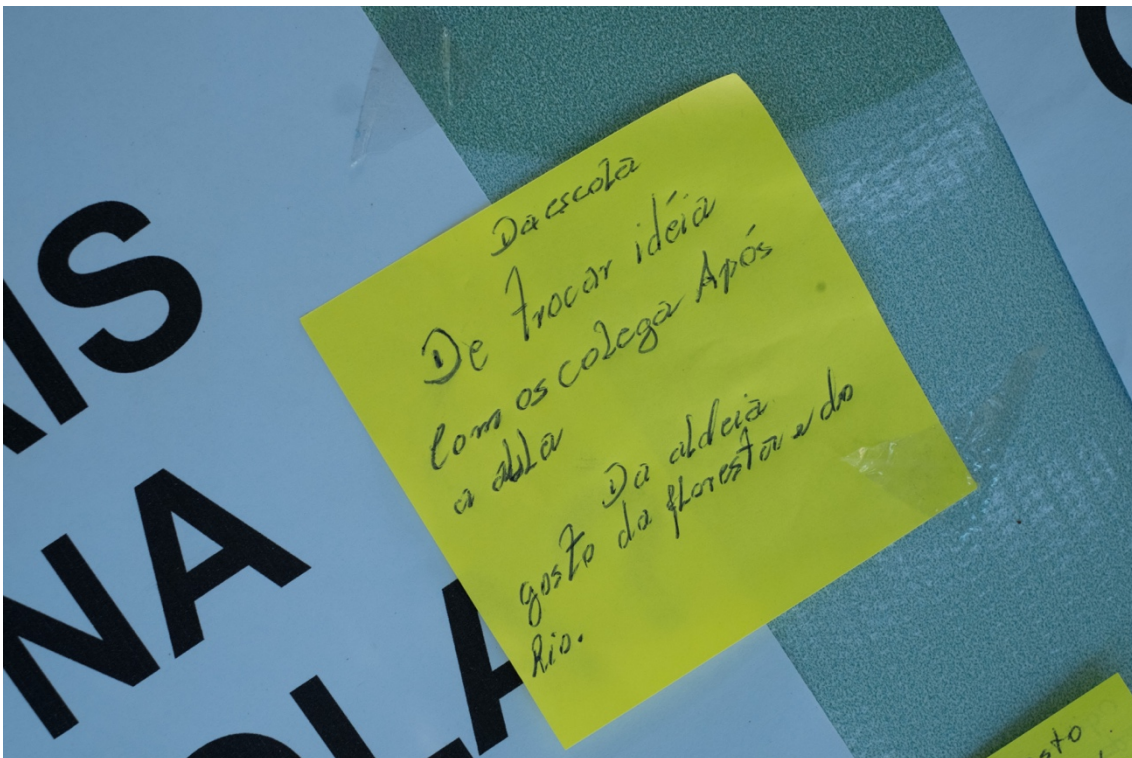 AIS
NA
OLA
Da escola
De trocar idéia
com os colega Após
a aula
Da aldeia
gosto da floresta e do
Rio.
sto